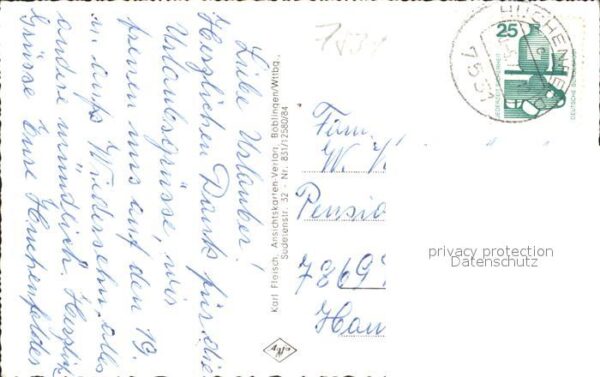 Liebe Urlauber!
Herzlichen Dank für die
Urlaubsgrüsse, wir
freuen uns auf den 19.
u. aufs Wiedersehn, alles
andere mündlich. Herzliche
Grüsse Eure Huchenfelder
Karl Fleisch, Ansichtskarten-Verlag, Böblingen/Wttbg.,
Sudetenstr. 32 - Nr. 831/12580/84
Agfa
7531
HUCHENFELD
7531
25
DEUTSCHE BUNDESPOST
Fam.
W.
Pensio
7869
Hau
privacy protection
Datenschutz